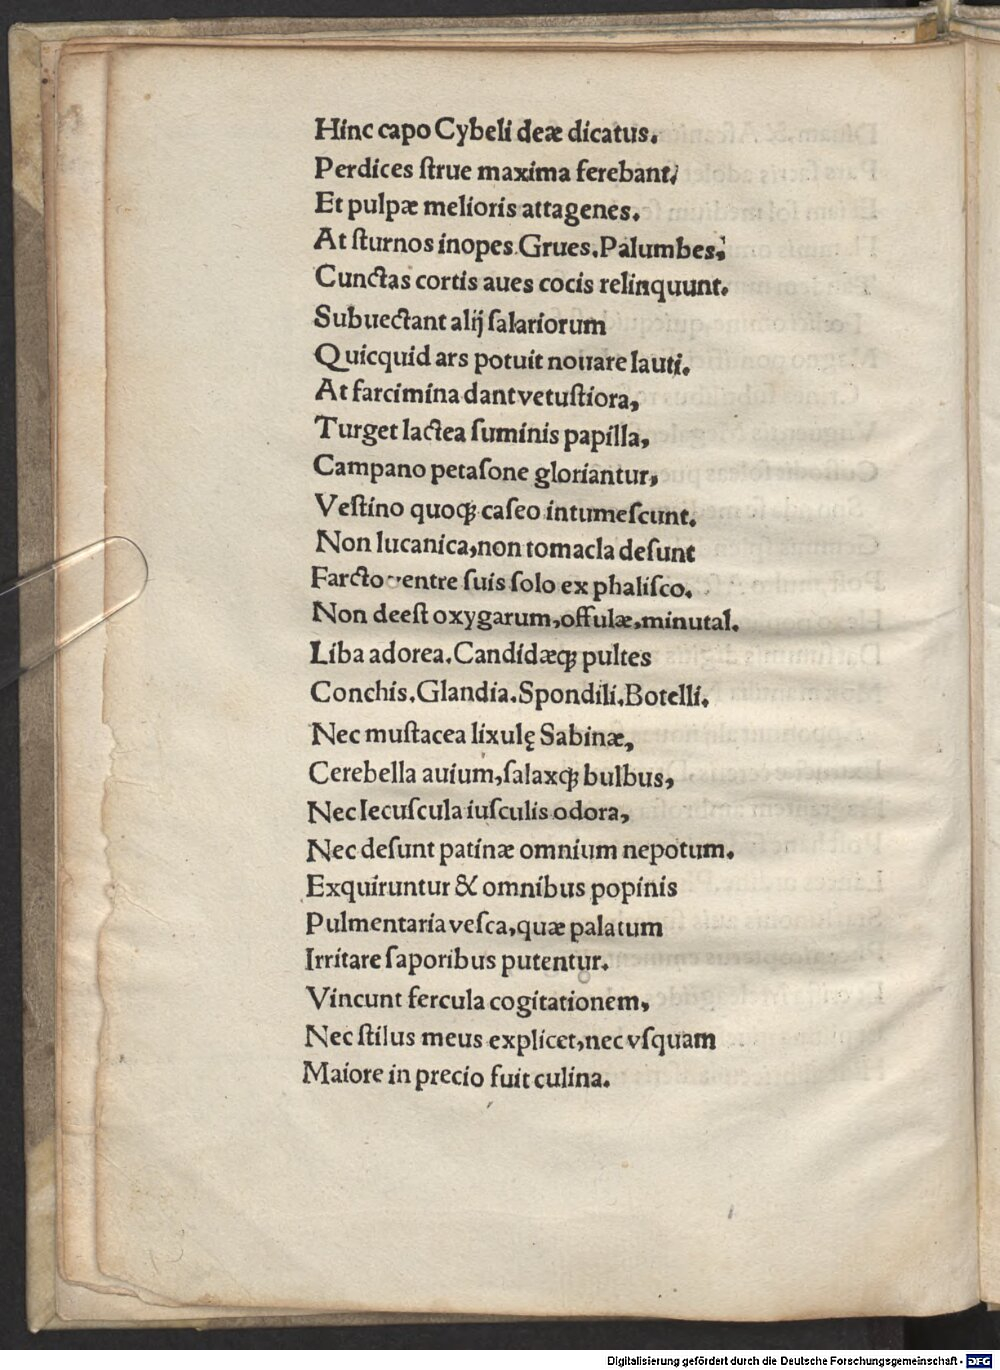 Hinc capo Cybeli deæ dicatus.
Perdices ſtrue maxima ferebant,
Et pulpæ melioris attagenes.
At ſturnos inopes.Grues.Palumbes,
Cunctas cortis aues cocis relinquunt.
Subuectant alij ſalariorum
Quicquid ars potuit nouare lauti.
At farcimina dant vetuſtiora,
Turget lactea ſuminis papilla,
Campano petaſone gloriantur,
Veſtino quoqꝫ caſeo intumeſcunt.
Non lucanica,non tomacla deſunt
Farcto ventre ſuis ſolo ex phaliſco.
Non deeſt oxygarum,offulæ,minutal.
Liba adorea.Candidæqꝫ pultes
Conchis.Glandia.Spondili.Botelli.
Nec muſtacea lixulę Sabinæ,
Cerebella auium,ſalaxqꝫ bulbus,
Nec Iecuſcula iuſculis odora,
Nec deſunt patinæ omnium nepotum.
Exquiruntur & omnibus popinis
Pulmentaria veſca,quæ palatum
Irritare ſaporibus putentur.
Vincunt fercula cogitationem,
Nec ſtilus meus explicet,nec vſquam
Maiore in precio fuit culina.
Digitalisierung gefördert durch die Deutsche Forschungsgemeinschaft - DFG